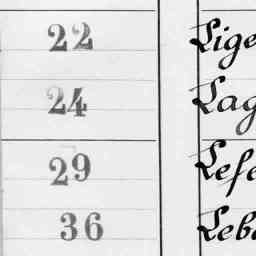 22 Lige
24 Lag
29 Lefe
36 Leba